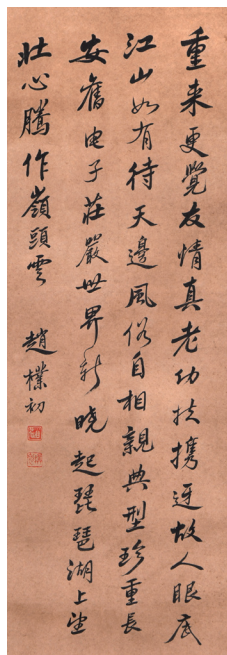 重来更覺友情真老幼扶携迓故人眼底
江山如有待天邊風俗自相親典型珍重長
安舊电子莊嚴世界新曉起琵琶湖上望
壯心騰作嶺頭雲 趙樸初